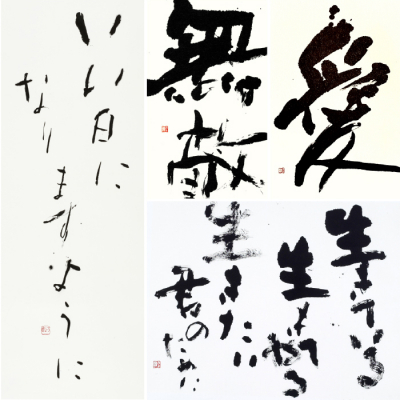 いい日に
なりますように
無敵
愛
生きている
生きたい
君のために